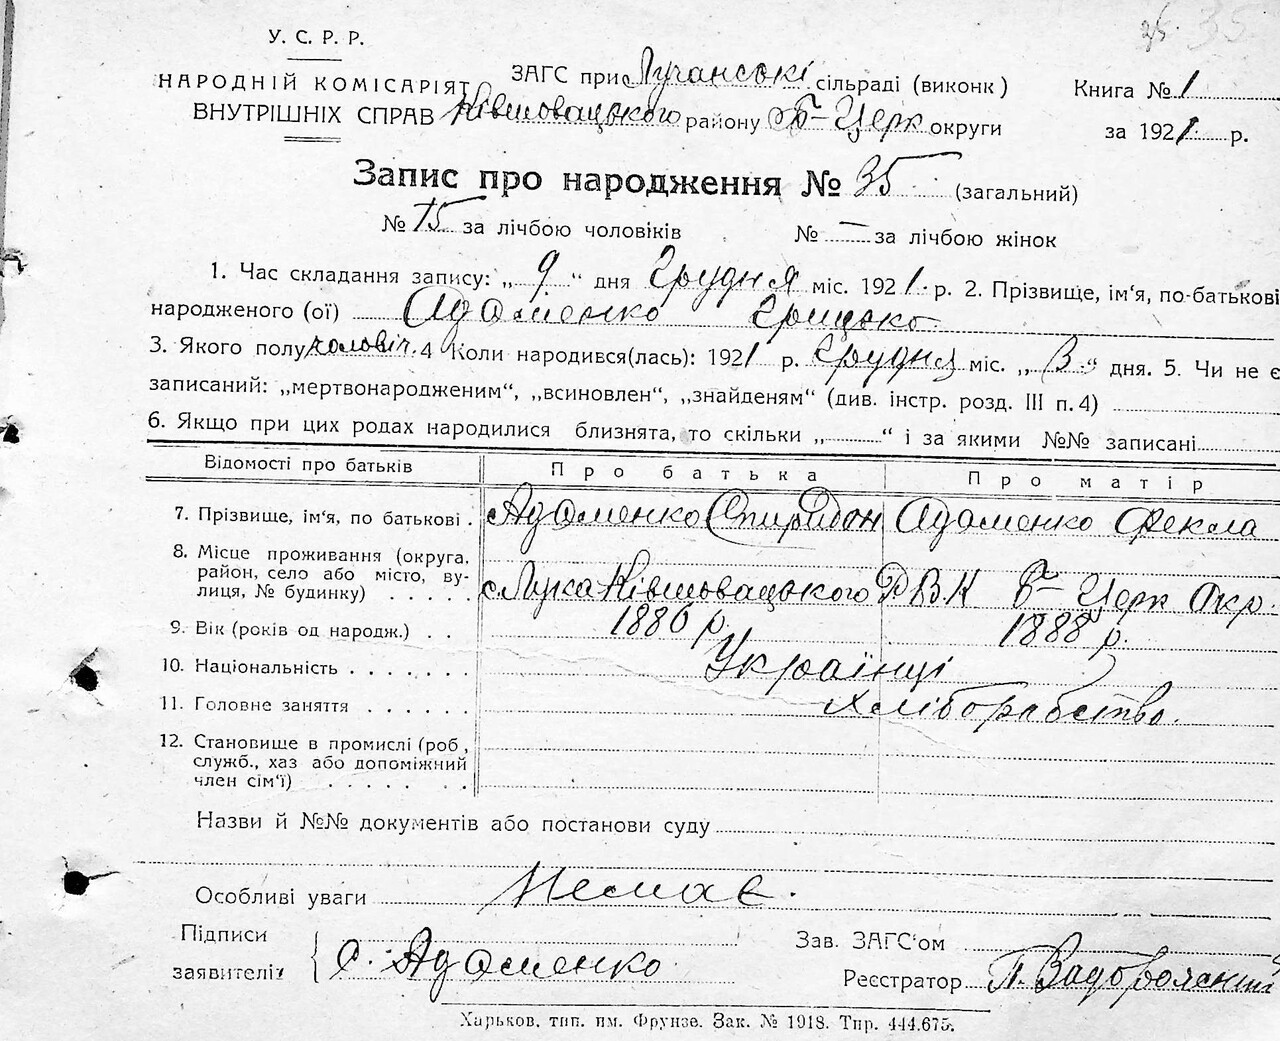 35.
У. С. Р. Р.
НАРОДНІЙ КОМІСАРІЯТ
ВНУТРІШНІХ СПРАВ
ЗАГС при Лучанські сільраді (виконк)
Ківшовацького району Б-Церк округи
Книга № 1
за 1921 р.
Запис про народження № 35 (загальний)
№ 15 за лічбою чоловіків № — за лічбою жінок
1. Час складання запису: „ 9 “ дня Грудня міс. 1921 р. 2. Прізвище, ім‘я, по-батькові
народженого (ої) Адаменко Грицько
3. Якого полу чоловіч. 4 Коли народився(лась): 1921 р. Грудня міс. „ 3 “ дня. 5. Чи не є
записаний: „мертвонародженим“, „всиновлен“, „знайденям“ (див. інстр. розд. III п. 4)
6. Якщо при цих родах народилися близнята, то скільки „ “ і за якими №№ записані
Відомості про батьків Про батька Про матір
7. Прізвище, ім‘я, по батькові . Адаменко Спиридон Адаменко Фекла
8. Місце проживання (округа,
район, село або місто, ву-
лиця, № будинку) . . . . . с. Лука Ківшовацького РВК Б-Церк Окр.
9. Вік (років од народж.) . . 1886 р. 1888 р.
10. Національність . . . . . . . Українці
11. Головне заняття . . . . . . Хліборобство.
12. Становище в промислі (роб,
служб., хаз або допоміжний
член сім‘ї) . . . . . . .
Назви й №№ документів або постанови суду
Особливі уваги Немає.
Підписи
заявителів С. Адаменко
Зав. ЗАГС‘ом
Реєстратор П.
Харьков. тип. им. Фрунзе. Зак. № 1918. Тир. 444.675.